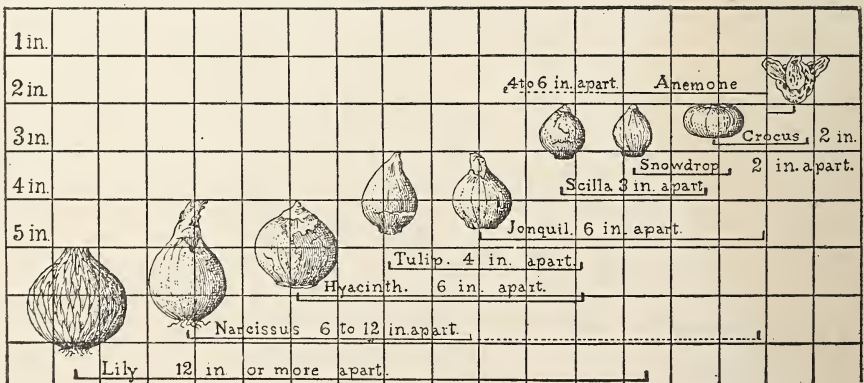 1 in.
2 in.
4 to 6 in. apart. Anemone
3 in.
Crocus 2 in.
Snowdrop 2 in. apart.
4 in.
Scilla 3 in. apart
5 in.
Jonquil. 6 in. apart.
Tulip. 4 in. apart.
Hyacinth. 6 in. apart.
Narcissus 6 to 12 in. apart.
Lily 12 in. or more apart.